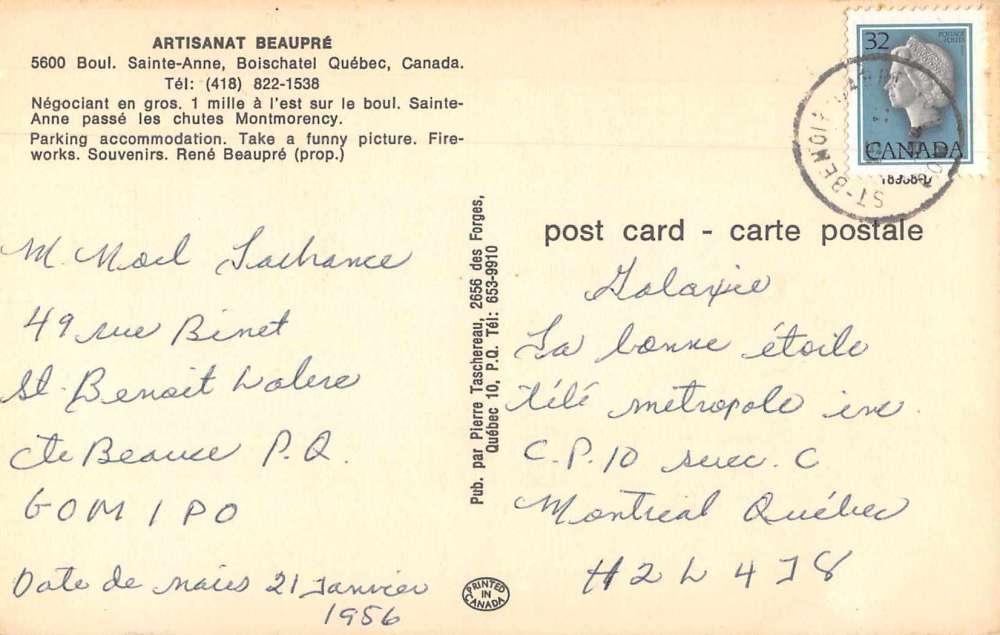 ARTISANAT BEAUPRÉ
5600 Boul. Sainte-Anne, Boischatel Québec, Canada.
Tél: (418) 822-1538
Négociant en gros. 1 mille à l'est sur le boul. Sainte-
Anne passé les chutes Montmorency.
Parking accommodation. Take a funny picture. Fire-
works. Souvenirs. René Beaupré (prop.)
M. Noel Lachance
49 rue Binet
St-Benoit Labre
Cte Beauce P.Q.
G0M 1P0
Date de naies 21 Janvier
1956
Pub. par Pierre Taschereau, 2656 des Forges,
Québec 10, P.Q. Tél: 653-9910
PRINTED
IN
CANADA
32
POSTAGE
POSTES
CANADA
ST-BENOIT
post card - carte postale
Galaxie
La bonne étoile
télé métropole inc.
C.P. 10 succ. C
Montréal Québec
H2L 4J8